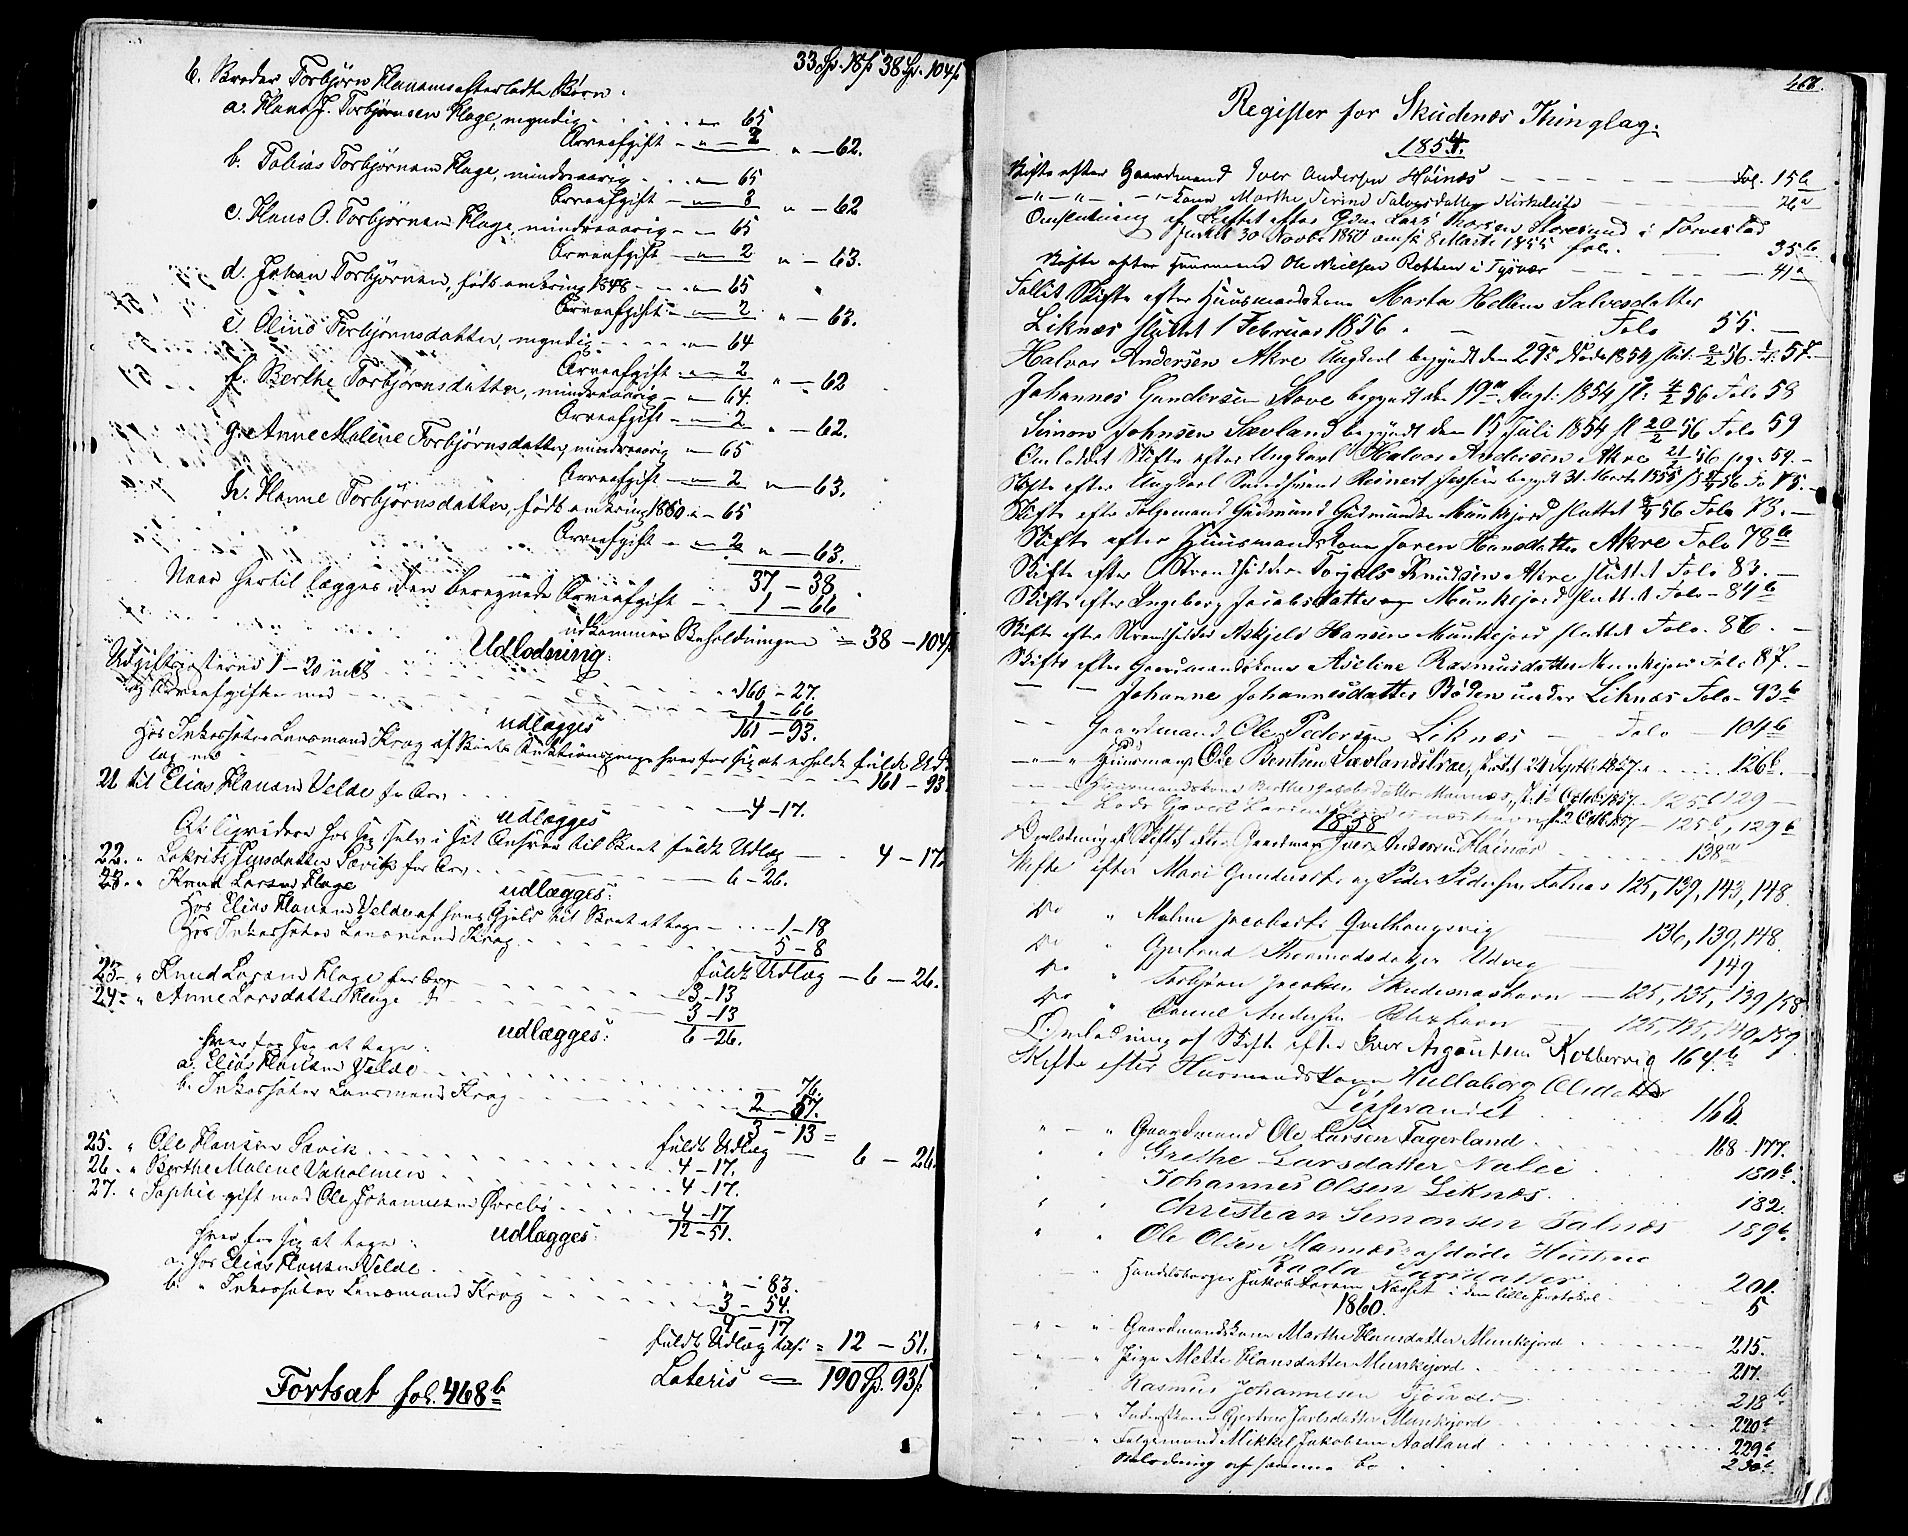 33 Sp. 18 s 38 Sp. 104 s
6. Broder Torbjørn Hansens efterladte Børn.
a. Hans J. Torbjørnsen Hage, myndig - 65
Arveafgift - " - 2 " - 62.
b. Tobias Torbjørnsen Hage, mindreaarig - 65
Arveafgift - " - 3 " - 62
c. Hans O. Torbjørnsen Hage, mindreaarig - 65
Arveafgift - " - 2 " - 63.
d. Johan Torbjørnsen, født omkring 1848 - 65
Arveafgift - " - 2 " - 63.
e. Oline Torbjørnsdatter, myndig - 64
Arveafgift - " - 2 " - 62
f. Berthe Torbjørnsdatter, mindreaarig - 64.
Arveafgift - " - 2 " - 62.
g. Anne Malene Torbjørnsdatter, mindreaarig - 65
Arveafgift - " - 2 " - 63.
h. Hanne Torbjørnsdatter, født omkring 1850 - 65
Arveafgift - " - 2 " - 63.
37 - 38
Naar hertil lægges den beregnede Arveafgift - 1 - 66
udkommer Beholdningen = 38 - 104 s
Udlodning:
Udgiftsposterne 1 - 20 inkl 160 - 27.
og Arveafgiften med 1 - 66
udlægges 161 - 93.
Hos Inkassator Lensmand Krog af Boets Auktionspenge hvorfor sig at erholde fuldt Ud-
læg med 161 - 93
21 til Elias Hansen Velde for Arv 4 - 17.
udlægges
At liqvidere hos sig selv i sit Ansvar til Boet fuldt Udlæg - 4 - 17.
22. " Sævik for Arv 6 - 26.
23. " Knud Larsen Hage udlægges:
Hos Elias Hansen Velde af hans Gjæld til Boet at tage - 1 - 18
Hos Inkassator Lensmand Krog 5 - 8
fuldt Udlæg - 6 - 26.
23 - " Knud Larsen Hage for Arv 3 - 13
24 - " Anne Larsdatter Hage 3 - 13
udlægges: 6 - 26.
hver for sig at tage:
a. Elias Hansen Velde 76.
b. Inkassator Lensmand Krog 2 - 57.
3 - 13 =
fuldt Udlæg - 6 - 26.
25. " Ole Hansen Sævik 4 - 17.
26. " Berthe Malene 4 - 17.
27. " Sophie gift med Ole Johannesen Øvrebø 4 - 17
udlægges: 12 - 51.
hver for sig at tage:
a. hos Elias Hansen Velde " - 83.
b. " Inkassator Lensmand Krog 3 - 54.
4 - 17
fuldt Udlæg = 12 - 51.
Lateris = 190 Sp. 93 s
Fortsat fol. 468 b
468.
Register for Skudenæs Thinglag.
1854.
Skifte efter Gaardmand Iver Andersen Høinæs - Fol. 15 b
- " - " - " Kone Marthe Serine Salvesdatter 26 a
Omslutning af Skiftet efter Lars Thorsen Storesund i Torvestad
sluttet 30 Novbr 1850 8 Marts 1855 fol. 35 b
Skifte efter Huusmand Ole Nielsen i Tysvær 41 a
Skifte efter Huusmandskone Marta Hellene Salvesdatter
Liknæs sluttet 1 Februar 1856. - Folo 55. -
Halvor Andersen Akre Ungkarl begyndt den 29de 1854 slut. 2/2 56 f. 57. -
Johannes Gundersen Stove begyndt den 19de Augt. 1854 sl. 4/2 56 Folo 58
Simon Johnsen Sævland begyndt den 15 Juli 1854 sl 20/2 56 Folo 59
Omloddet Skifte efter Ungkarl Halvor Andersen Akre 21/2 56 pg. 59. -
Skifte efter Ungkarl Reinert begyndt 31 Marts 1855 56 Fo 75. -
Skifte efter Følgemand Gudmund Gudmundsen Munkejord sluttet 56 Folo 78. -
Skifte efter Huusmandskone Joren Hansdatter Akre Folo 78 b
Skifte efter Strandsidder Torjels Knudsen Akre sluttet Folo 83. -
Skifte efter Ingeborg Jacobsdatter Munkejord sluttet Folo - 84 b
Skifte efter Strandsidder Askjeld Hansen Munkejord sluttet Folo. 86. -
Skifte efter Gaardmandskone Aseline Rasmusdatter Munkejord Folo 87. -
- - Johanne Johannesdatter Bøden under Liknæs Folo - 93 b
- - Gaardmand Ole Pedersen Liknæs - Folo - 104 b
- " - " Huusmand Ole Bentsen Sævlandstræ, sluttet 21 Septbr 1857 126 b. -
- " - Huusmandskone Berthe Jacobsdatter Mannæs, 1 Octobr 1857 - 125 b 129 -
- " - Lods 2 Octb. 1857 - 125 b, 129 b
1858
Omlodning af Skiftet efter Gaardmand Iver Andersen Høinæs 138 a
Skifte efter Mari Gundersdtr og Peder Pedersen Falnæs 125, 139, 143, 148.
do " Malene Jacobsdtr 136, 139, 148.
do " Gjertrud Thormodsdatter Udvig 149
do " Torbjørn Jacobsen Skudesneshavn - 125, 135, 139, 158
do " Andersen 125, 135, 140, 159.
Omlodning af Skifte efter Iver Asgautsen Kobbervig 164 b
Skifte efter Husmandskone Hulleborg Olsdatter
168
" - " Gaardmand Ole Larsen Fagerland 168 - 177.
" " Grethe Larsdatter Nalee 180 b.
" Johannes Olsen Liknæs 182.
" " Christian Simonsen Falnæs 189 b
" " Ole Olsen Mannæs afdøde Hustrue
Larsdatter 201.
Handelsborger Jakob Larsen Næsset i den lille Protokol 5
1860.
" - " Gaardmandskone Marthe Hansdatter Munkejord 215.
" Pige Mette Hansdatter Munkejord 217.
" Rasmus Johannesen 218 b
" Gjertrue Munkejord 220 b
" Følgemand Mikkel Jakobsen Aadland 229 b
Omlodning af samme Bo 230 b.